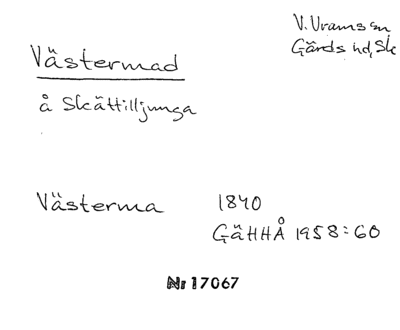 V. Vrams sn
Gärds hd, Sk
Västermad
å Skättilljunga
Västerma 1840
GäHHÅ 1958:60
Nr 17067